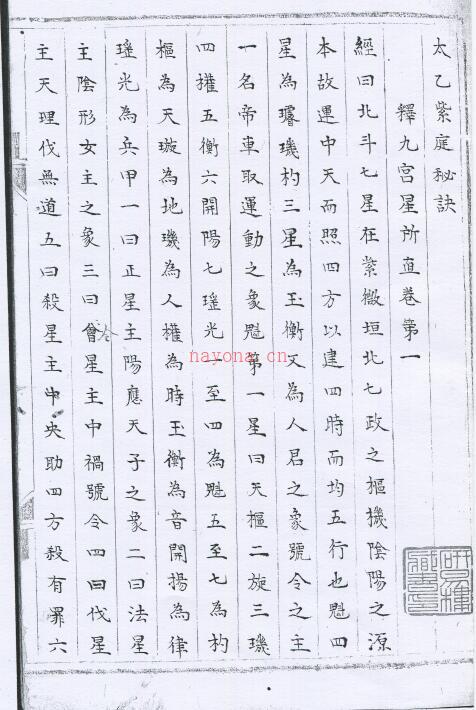 太乙紫庭秘訣
釋九宮星所直卷第一
經曰北斗七星在紫微垣北七政之樞機陰陽之源
本故運中天而照四方以建四時而均五行也魁四
星為璿璣杓三星為玉衡又為人君之象號令之主
一名帝車取運動之象魁第一星曰天樞二旋三璣
四權五衡六開陽七瑤光一至四為魁五至七為杓
樞為天璇為地璣為人權為時玉衡為音開揚為律
瑤光為兵甲一曰正星主陽應天子之象二曰法星
主陰形女主之象三曰會星主中禍號令四曰伐星
主天理伐無道五曰殺星主中央助四方殺有罪六
令
nayona.cn